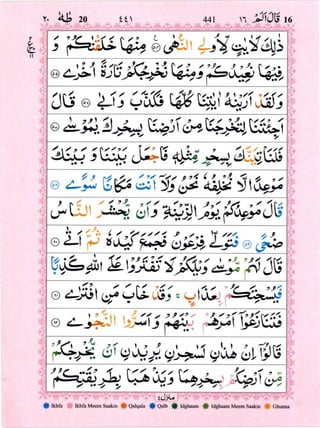 ١٦ قَالَ اَلَمْ 16 441 ٤٤١ طٰهٰ 20 ٢٠
ذٰلِكَ لَاٰيٰتٍ لِّاُولِي النُّهٰى ۝٥٤ مِنْهَا خَلَقْنٰكُمْ وَ
فِيْهَا نُعِيْدُكُمْ وَمِنْهَا نُخْرِجُكُمْ تَارَةً اُخْرٰى ۝٥٥
وَلَقَدْ اَرَيْنٰهُ اٰيٰتِنَا كُلَّهَا فَكَذَّبَ وَاَبٰى ۝٥٦ قَالَ
اَجِئْتَنَا لِتُخْرِجَنَا مِنْ اَرْضِنَا بِسِحْرِكَ يٰمُوْسٰى ۝٥٧
فَلَنَاْتِيَنَّكَ بِسِحْرٍ مِّثْلِهٖ فَاجْعَلْ بَيْنَنَا وَبَيْنَكَ
مَوْعِدًا لَّا نُخْلِفُهٗ نَحْنُ وَلَاۤ اَنْتَ مَكَانًا سُوًى ۝٥٨
قَالَ مَوْعِدُكُمْ يَوْمُ الزِّيْنَةِ وَاَنْ يُّحْشَرَ النَّاسُ
ضُحًى ۝٥٩ فَتَوَلّٰى فِرْعَوْنُ فَجَمَعَ كَيْدَهٗ ثُمَّ اَتٰى ۝٦٠
قَالَ لَهُمْ مُّوْسٰى وَيْلَكُمْ لَا تَفْتَرُوْا عَلَى اللّٰهِ كَذِبًا
فَيُسْحِتَكُمْ بِعَذَابٍ ۚ وَقَدْ خَابَ مَنِ افْتَرٰى ۝٦١
فَتَنَازَعُوْۤا اَمْرَهُمْ بَيْنَهُمْ وَاَسَرُّوا النَّجْوٰى ۝٦٢
قَالُوْۤا اِنْ هٰذٰىنِ لَسٰحِرٰنِ يُرِيْدٰنِ اَنْ يُّخْرِجٰكُمْ
مِّنْ اَرْضِكُمْ بِسِحْرِهِمَا وَيَذْهَبَا بِطَرِيْقَتِكُمُ
منزل ٤
Ikhfa Ikhfa Meem Saakin Qalqala Qalb Idghaam Idghaam Meem Saakin Ghunna